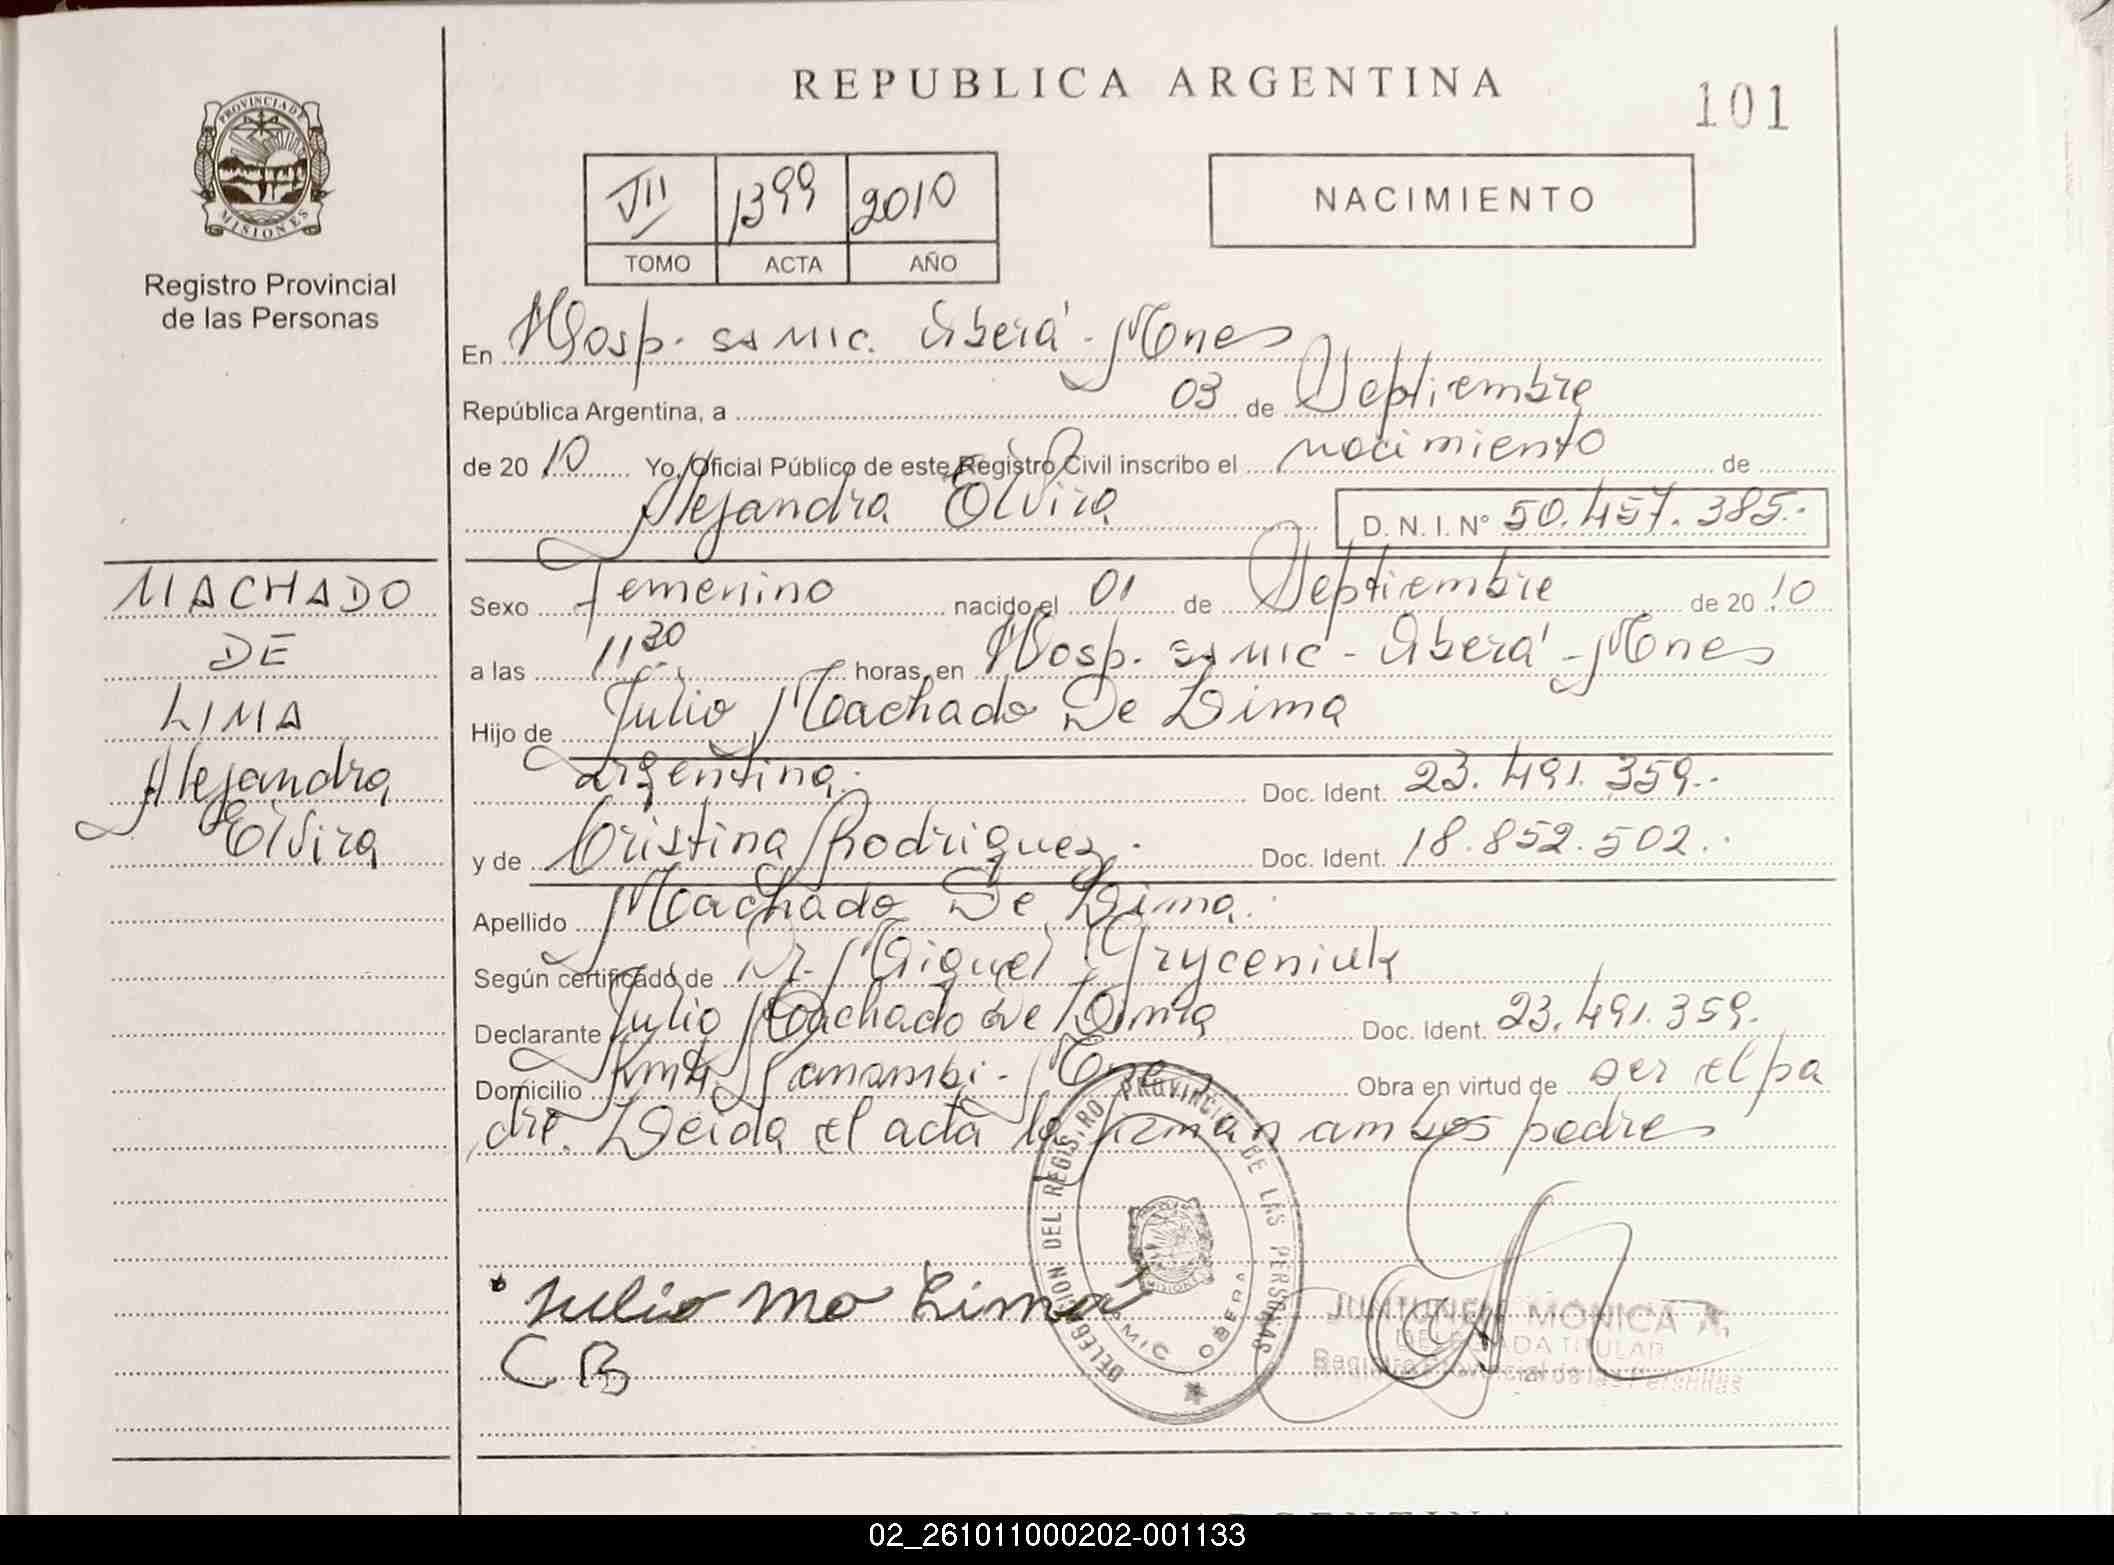 REPUBLICA ARGENTINA
101
PROVINCIA DE
MISIONES
Registro Provincial
de las Personas
VII 1399 2010
TOMO ACTA AÑO
NACIMIENTO
En Hosp. SAMIC. Oberá - Mnes
República Argentina, a 03 de Septiembre
de 20 10 Yo, Oficial Público de este Registro Civil inscribo el nacimiento de
Alejandra Elvira D. N. I. N° 50.457.385.-
MACHADO
DE
LIMA
Alejandra
Elvira
Sexo Femenino nacido el 01 de Septiembre de 20 10
a las 11 30 horas, en Hosp. SAMIC - Oberá - Mnes
Hijo de Julio Machado De Lima
argentina. Doc. Ident. 23.491.359.-
y de Cristina Rodriguez. Doc. Ident. 18.852.502.-
Apellido Machado De Lima.
Según certificado de Dr. Miguel Gryceniuk
Declarante Julio Machado de Lima Doc. Ident. 23.491.359.
Domicilio Panambi - Mnes Obra en virtud de ser el pa
dre. Leida el acta la firman ambos padres
Julio Ma Lima
C B
DELEGACION DEL REGISTRO PROVINCIAL DE LAS PERSONAS
SAMIC OBERA
MONICA
DELEGADA TITULAR
Registro Provincial de las Personas
02_261011000202-001133